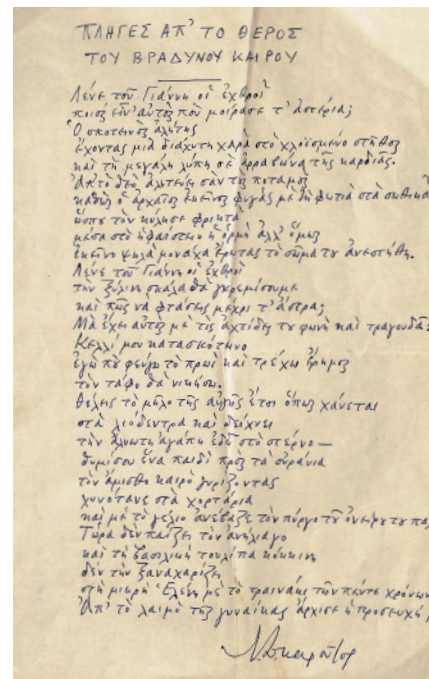 ΠΛΗΓΕΣ ΑΠ' ΤΟ ΘΕΡΟΣ
ΤΟΥ ΒΡΑΔΥΝΟΥ ΚΑΙΡΟΥ
Λένε τοῦ Γιάννη οἱ ἐχθροὶ
ποιος εἶν' αὐτὸς ποὺ μοίρασε τ' ἀστέρια;
Ὁ σκοτεινὸς ἀλήτης
ἔχοντας μιὰ διάχυτη χαρὰ στὸ χλοϊσμένο στῆθος
καὶ τὴ μεγάλη λύπη σὲ ἀρραβῶνα τῆς καρδιᾶς.
Ἀπ' τὸ θεὸ ἀλητεύει σὰν τοὺς ποταμοὺς
καθὼς ὁ ἀρχαῖος ἐκεῖνος φυγὰς με τὴ φωτιὰ στὰ σωθικὰ
ὥσπου τὸν κύλησε φρικτὰ
μέσα στὸ ἡφαίστειο ἡ ὁρμὴ ἀλλ' ὅμως
ἐκεῖνο ψηλὰ μονάχα ἔρωτας τὸ σῶμα του ἀνεστήθη.
Λένε τοῦ Γιάννη οἱ ἐχθροὶ
τὴν ξύλινη σκάλα θὰ γκρεμίσουμε
καὶ πῶς νὰ φτάσεις μέχρι τ' ἄστρα;
Μὰ ἔχει αὐτὸς με τὶς ἀχτίδες τη φωνὴ καὶ τραγουδᾶ:
Κελλί μου κατασκότεινο
ἐγὼ ποὺ φεύγω τὸ πρωὶ καὶ τρέχω ἔρημος
τὸν τάφο θὰ νικήσω.
Θέλεις τὸ μῆλο τῆς αὐγῆς ἔτσι ὅπως χάνεται
στὰ λιόδεντρα καὶ δείχνει
τὴν ἄλιωτη ἀγάπη ἐδῶ στὸ στέρνο —
θυμίσου ἕνα παιδὶ πρὸς τὰ οὐράνια
τὸν ἄμισθο καιρὸ γυρίζοντας
χυνότανε στὰ χορτάρια
καὶ με τὸ γέλιο ἀνέβαζε τὸν πύργο τοῦ ὀνείρου του
Τώρα δὲν παίζει τὸν ἀνήλιαγο
καὶ τὴ βασιλικὴ τουλίπα κόκκινη
δὲν τὴν ξαναχαρίζει
στὴ μικρὴ Ἑλένη με τὸ τραινάκι τῶν πέντε χρόνων
Ἀπ' τὸ λαιμὸ τῆς γυναίκας ἄρχισε ἡ προσευχή